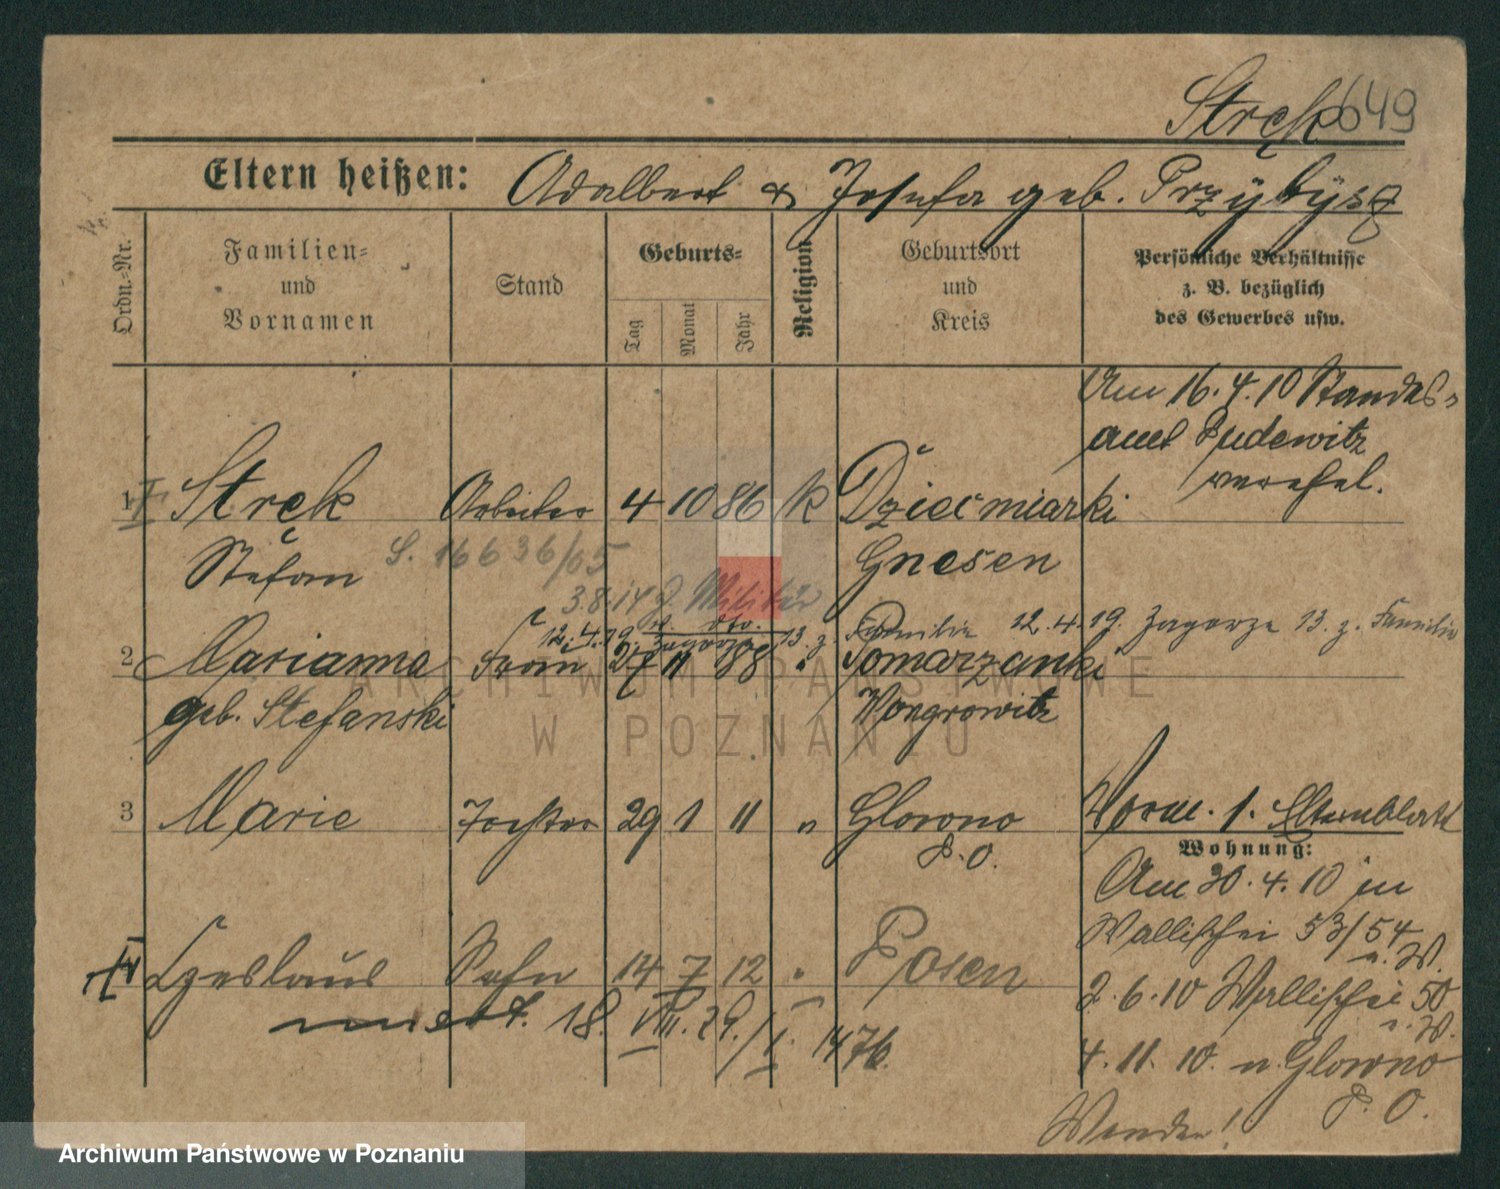 Stręk 649
Eltern heißen: Adalbert & Josefa geb. Przybysz
Ordn.-Nr.
Familien-
und
Vornamen
Stand
Geburts-
Tag
Monat
Jahr
Religion
Geburtsort
und
Kreis
Persönliche Verhältnisse
z. B. bezüglich
des Gewerbes usw.
Am 16.4.10 Standes-
amt Pudewitz
verehel.
1 Stręk Arbeiter 4 10 86 K Dziećmiarki
Stefan Gnesen
S. 16636/05
3.8.14 z. Militär
12.4.19 Zagorze 13. z. Familie 12.4.19. Zagorze 13. z. Familie
2 Marianna Frau 27 11 88 " Pomarzanki
geb. Stefanski Wongrowitz
3 Marie Tochter 29 1 11 " Glowno
P. O.
Vorm. 1. Elternblatt
Wohnung:
Am 20.4.10 in
Wallischei 53/54
n. W.
2.6.10 Wallischei 50
n. W.
4.11.10. n. Glowno
P. O.
Wenden!
IV Czeslaus Sohn 14 7 12 " Posen
18. VIII. 29. / I. 1476.
ARCHIWUM PAŃSTWOWE
W POZNANIU
Archiwum Państwowe w Poznaniu